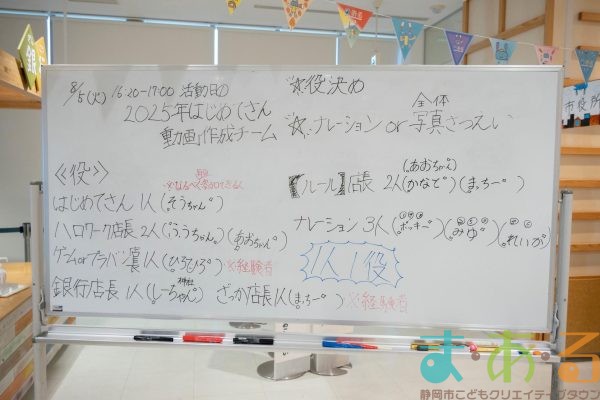 8/5(火) 16:20-17:00 活動日①
2025年はじめてさん
動画作成チーム
☆役決め
全体
☆ナレーション or 写真さつえい
《役》
はじめてさん 1人(そうちゃん)
ハローワーク店長 2人(ううちゃん。)(あおちゃん)
ゲームorプラバン 1人(ひろひろ)※経験者
銀行店長 1人(しーちゃん) ざっか店長1人(まっちー)※経験者
(あおちゃん)
【ルール】店長 2人(かなで)(まっちー)
ナレーション 3人(ポッキー)(みゆ)(れいが)
1人1役
市役所
まある
静岡市こどもクリエイティブタウン